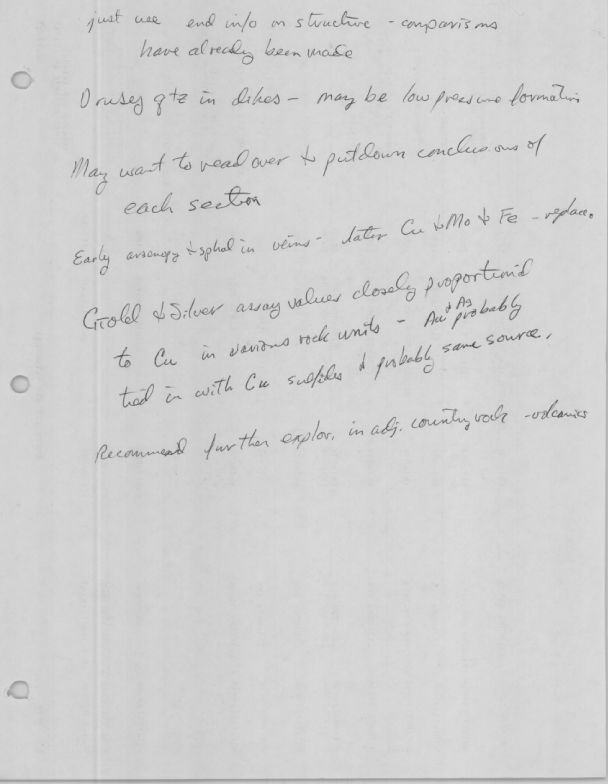 just use end info on structive - comparisms
have already been made
Drusey qtz in dikes - may be low pressure formation
May want to read over & putdown conclusions of
each section
Early arsenopy & sphal in veins - later Cu & Mo & Fe - replac.
Gold & Silver assay values closely proportion'd
to Cu in various rock units - Au & Ag probably
tied in with Cu sulfides & probably same source.
Recommend further explor. in adj. country rock - volcanics